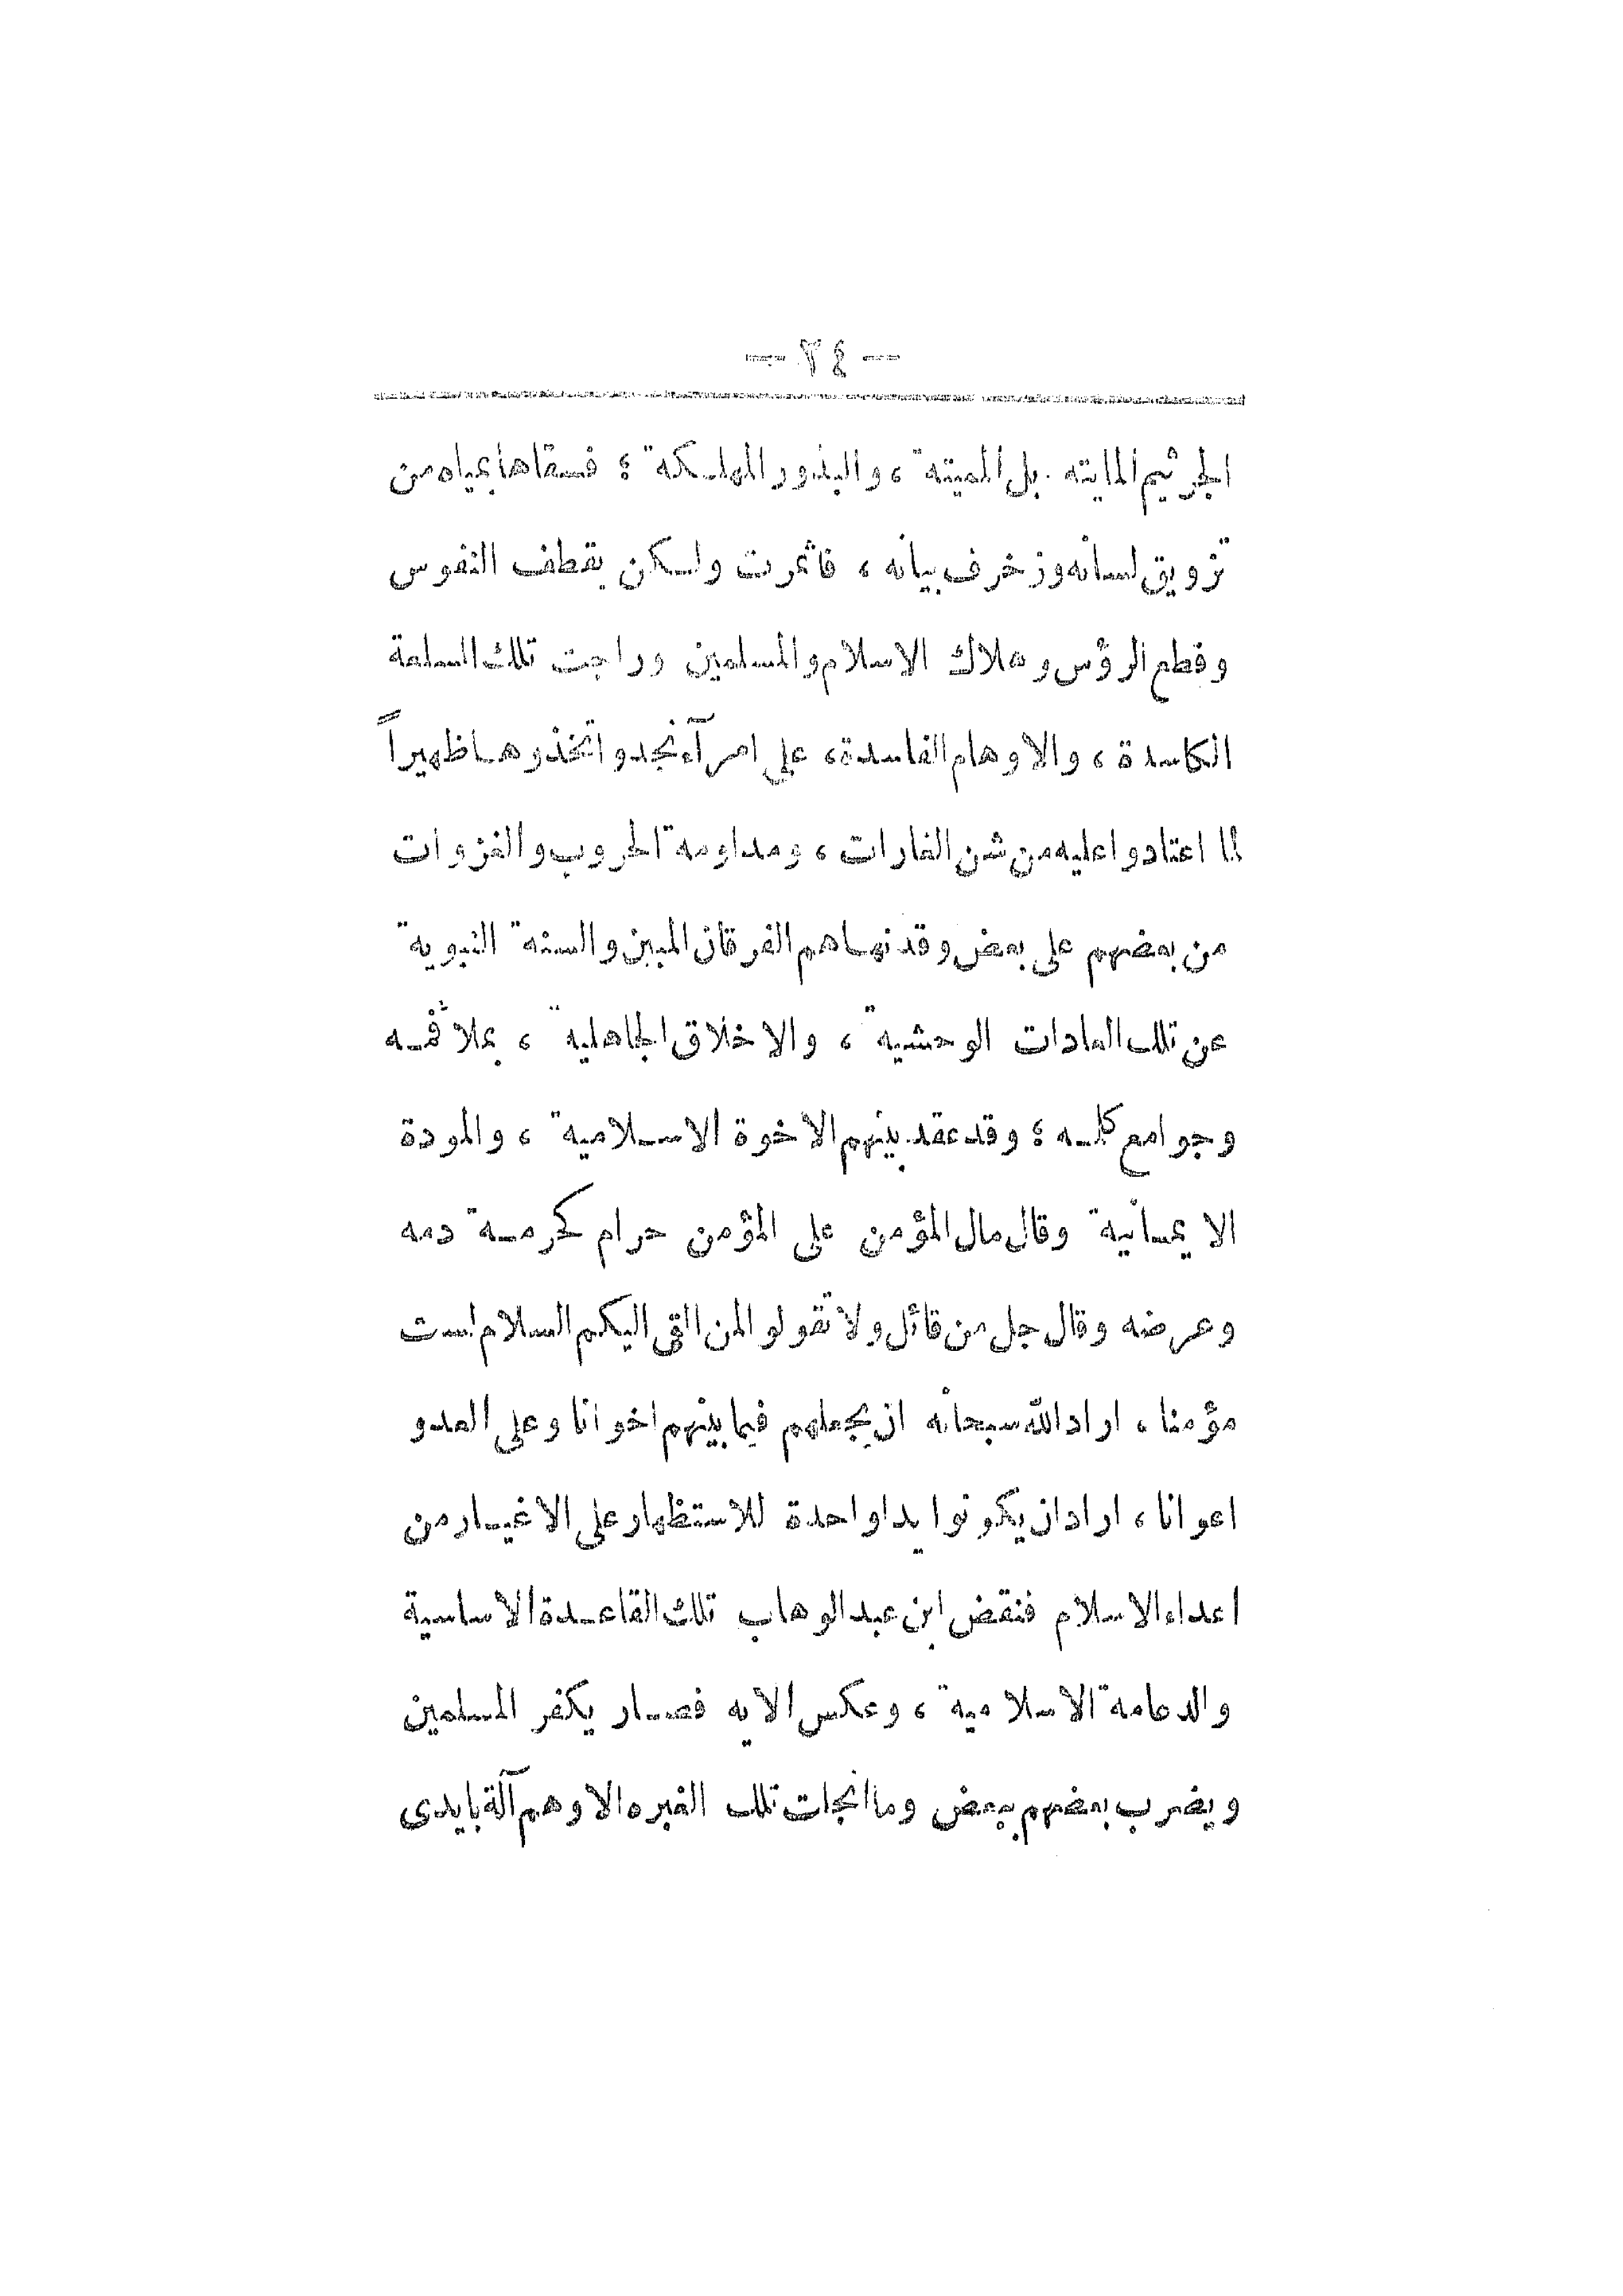 — ٢٤ —
الجرثيم المايته . بل المميتة ، والبذور المهلكة ؛ فسقاها بمياه من
تزويق لسانه وزخرف بيانه ، فاثمرت ولكن بقطف النفوس
وقطع الرؤس وهلاك الاسلام والمسلمين وراجت تلك السلعة
الكاسدة ، والاوهام الفاسدة ، على امرآء نجد واتخذوها ظهيراً
لما اعتادوا عليه من شن الغارات ، ومداومة الحروب والغزوات
من بعضهم على بعض وقد نهاهم الفرقان المبين والسنة النبوية
عن تلك العادات الوحشية ، والاخلاق الجاهلية ، بملأ فمه
وجوامع كلمه ؛ وقد عقد بينهم الاخوة الاسلامية ، والمودة
الايمانية وقال مال المؤمن على المؤمن حرام كحرمة دمه
وعرضه وقال جل من قائل ولا تقولوا لمن القى اليكم السلام لست
مؤمنا ، اراد الله سبحانه ان يجعلهم فيما بينهم اخوانا وعلى العدو
اعوانا ، اراد ان يكونوا يدا واحدة للاستظهار على الاغيار من
اعداء الاسلام فنقض ابن عبد الوهاب تلك القاعدة الاساسية
والدعامة الاسلامية ، وعكس الايه فصار يكفر المسلمين
ويضرب بعضهم ببعض وما انجلت تلك الغبره الا وهم آلة بايدى